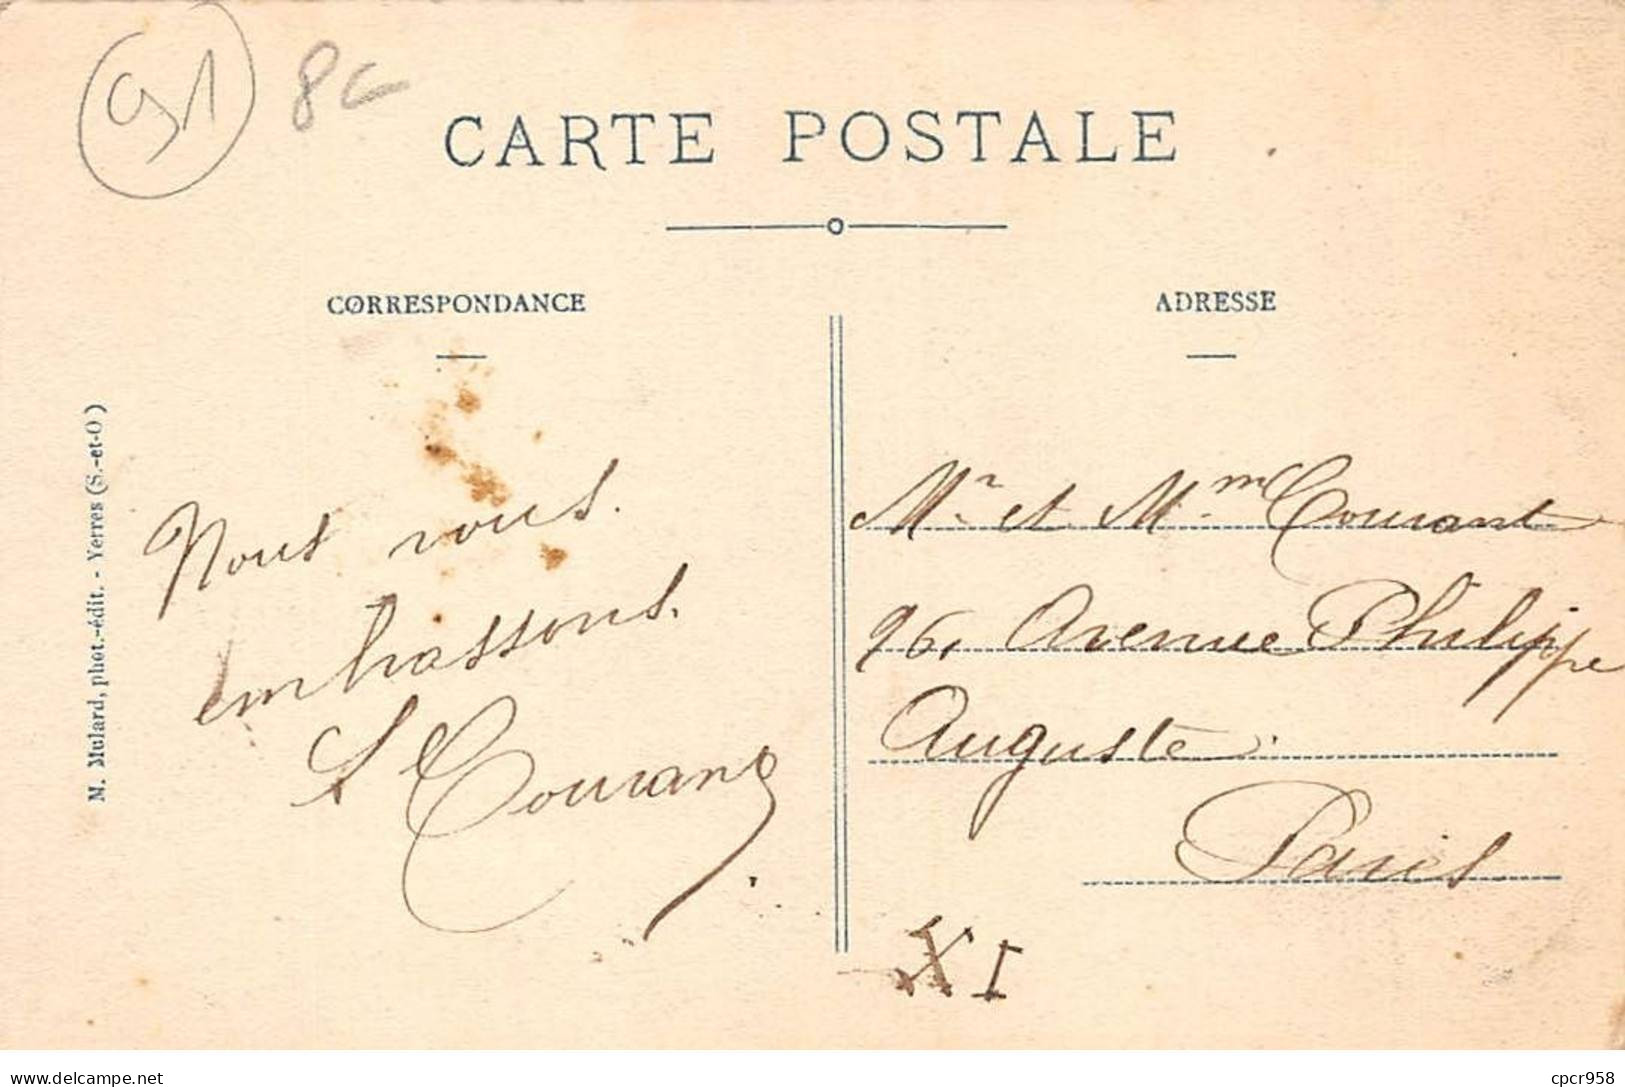 91
8€
CARTE POSTALE
CORRESPONDANCE
ADRESSE
M. Mulard, phot.-édit. - Yerres (S.-et-O)
Nous vous
embrassons.
L Courant
Mr et Mme Courant
96, Avenue Philippe
Auguste
Paris
XI
delcampe.net
cpcr958